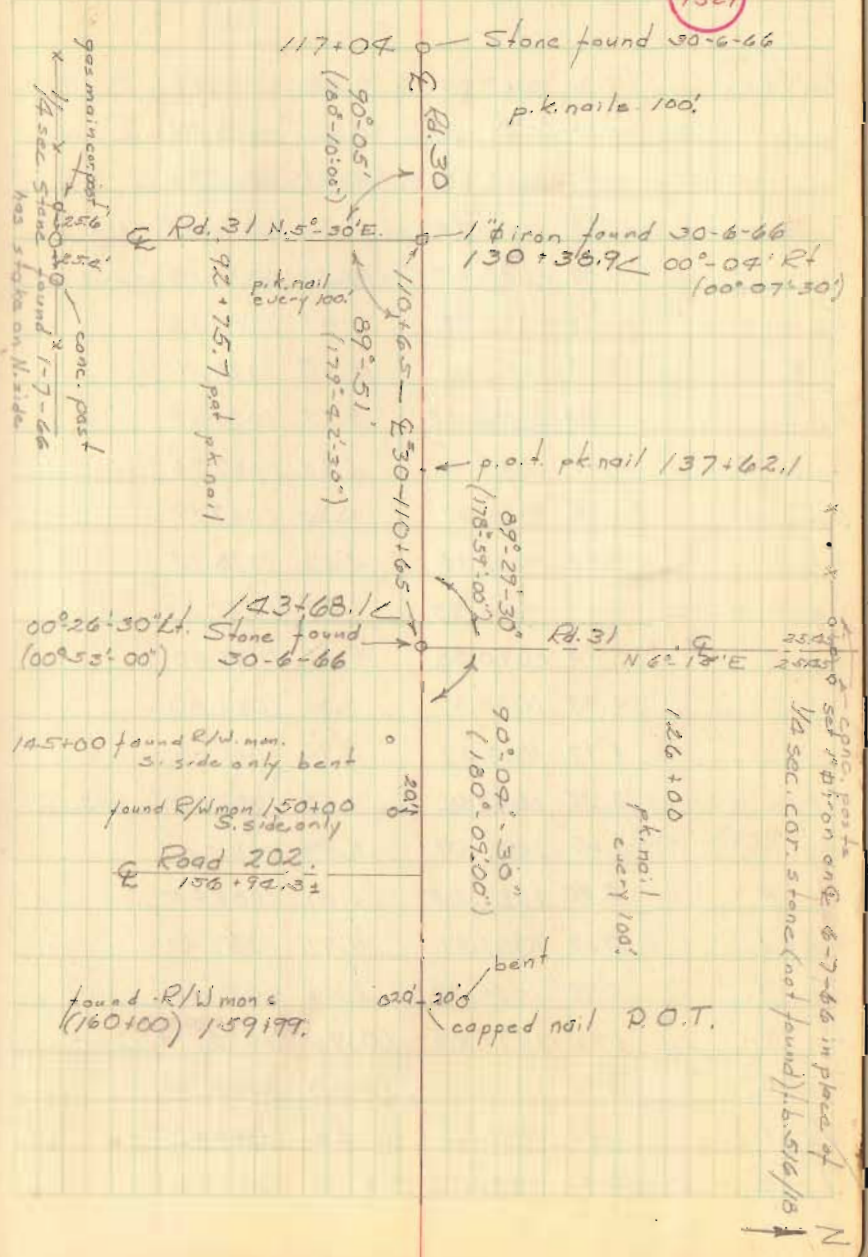 117+04
Stone found 30-6-66
℄ Rd. 30
p.k. nails 100'
90°-05'
(180°-10'-00")
gas main conc. post
1/4 sec. stone found 1-7-66
has stake on N. side
conc. post
25.6
25.6'
℄ Rd. 31 N. 5°-30' E.
1"⌀ iron found 30-6-66
130+38.9∠ 00°-04' Rt
(00°-07'-30")
p.k. nail
every 100'
92+75.7 pot pk. nail
89°-51'
(179°-42'-30")
110+65 — ℄ 30-110+65
p.o.t. pk nail 137+62.1
89°-29'-30"
(178°-59'-00")
143+68.1∠
00°-26'-30" Lt. Stone found
(00°-53'-00") 30-6-66
Rd. 31 ℄
N 6°-18' E
conc. posts
set 1"⌀ iron on ℄ 6-7-66 in place of
1/4 sec. cor. stone (not found) f.b. 516/18
90°-04'-30"
(180°-09'-00")
126+00
pk. nail
every 100'
145+00 found R/W. mon.
S. side only bent
found R/W mon 150+00
S. side only
℄ Road 202.
156+94.3±
bent
found R/W mons
(160+00) 159+99.
20' 20'
capped nail P.O.T.
N